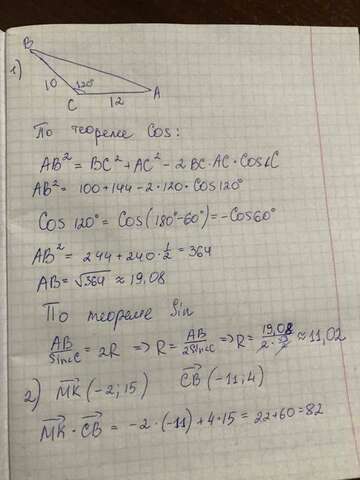 1)
B
10
120°
C
12
A
По теореме Cos:
AB² = BC² + AC² - 2BC·AC·Cos∠C
AB² = 100+144-2·120·Cos120°
Cos 120° = Cos(180°-60°) = -Cos60°
AB² = 244+240·1/2 = 364
AB = √364 ≈ 19,08
По теореме Sin
AB/Sin∠C = 2R => R = AB/2Sin∠C => R = 19,08/2·√3/2 ≈ 11,02
2) MK (-2; 15) CB (-11; 4)
MK · CB = -2·(-11)+4·15 = 22+60 = 82